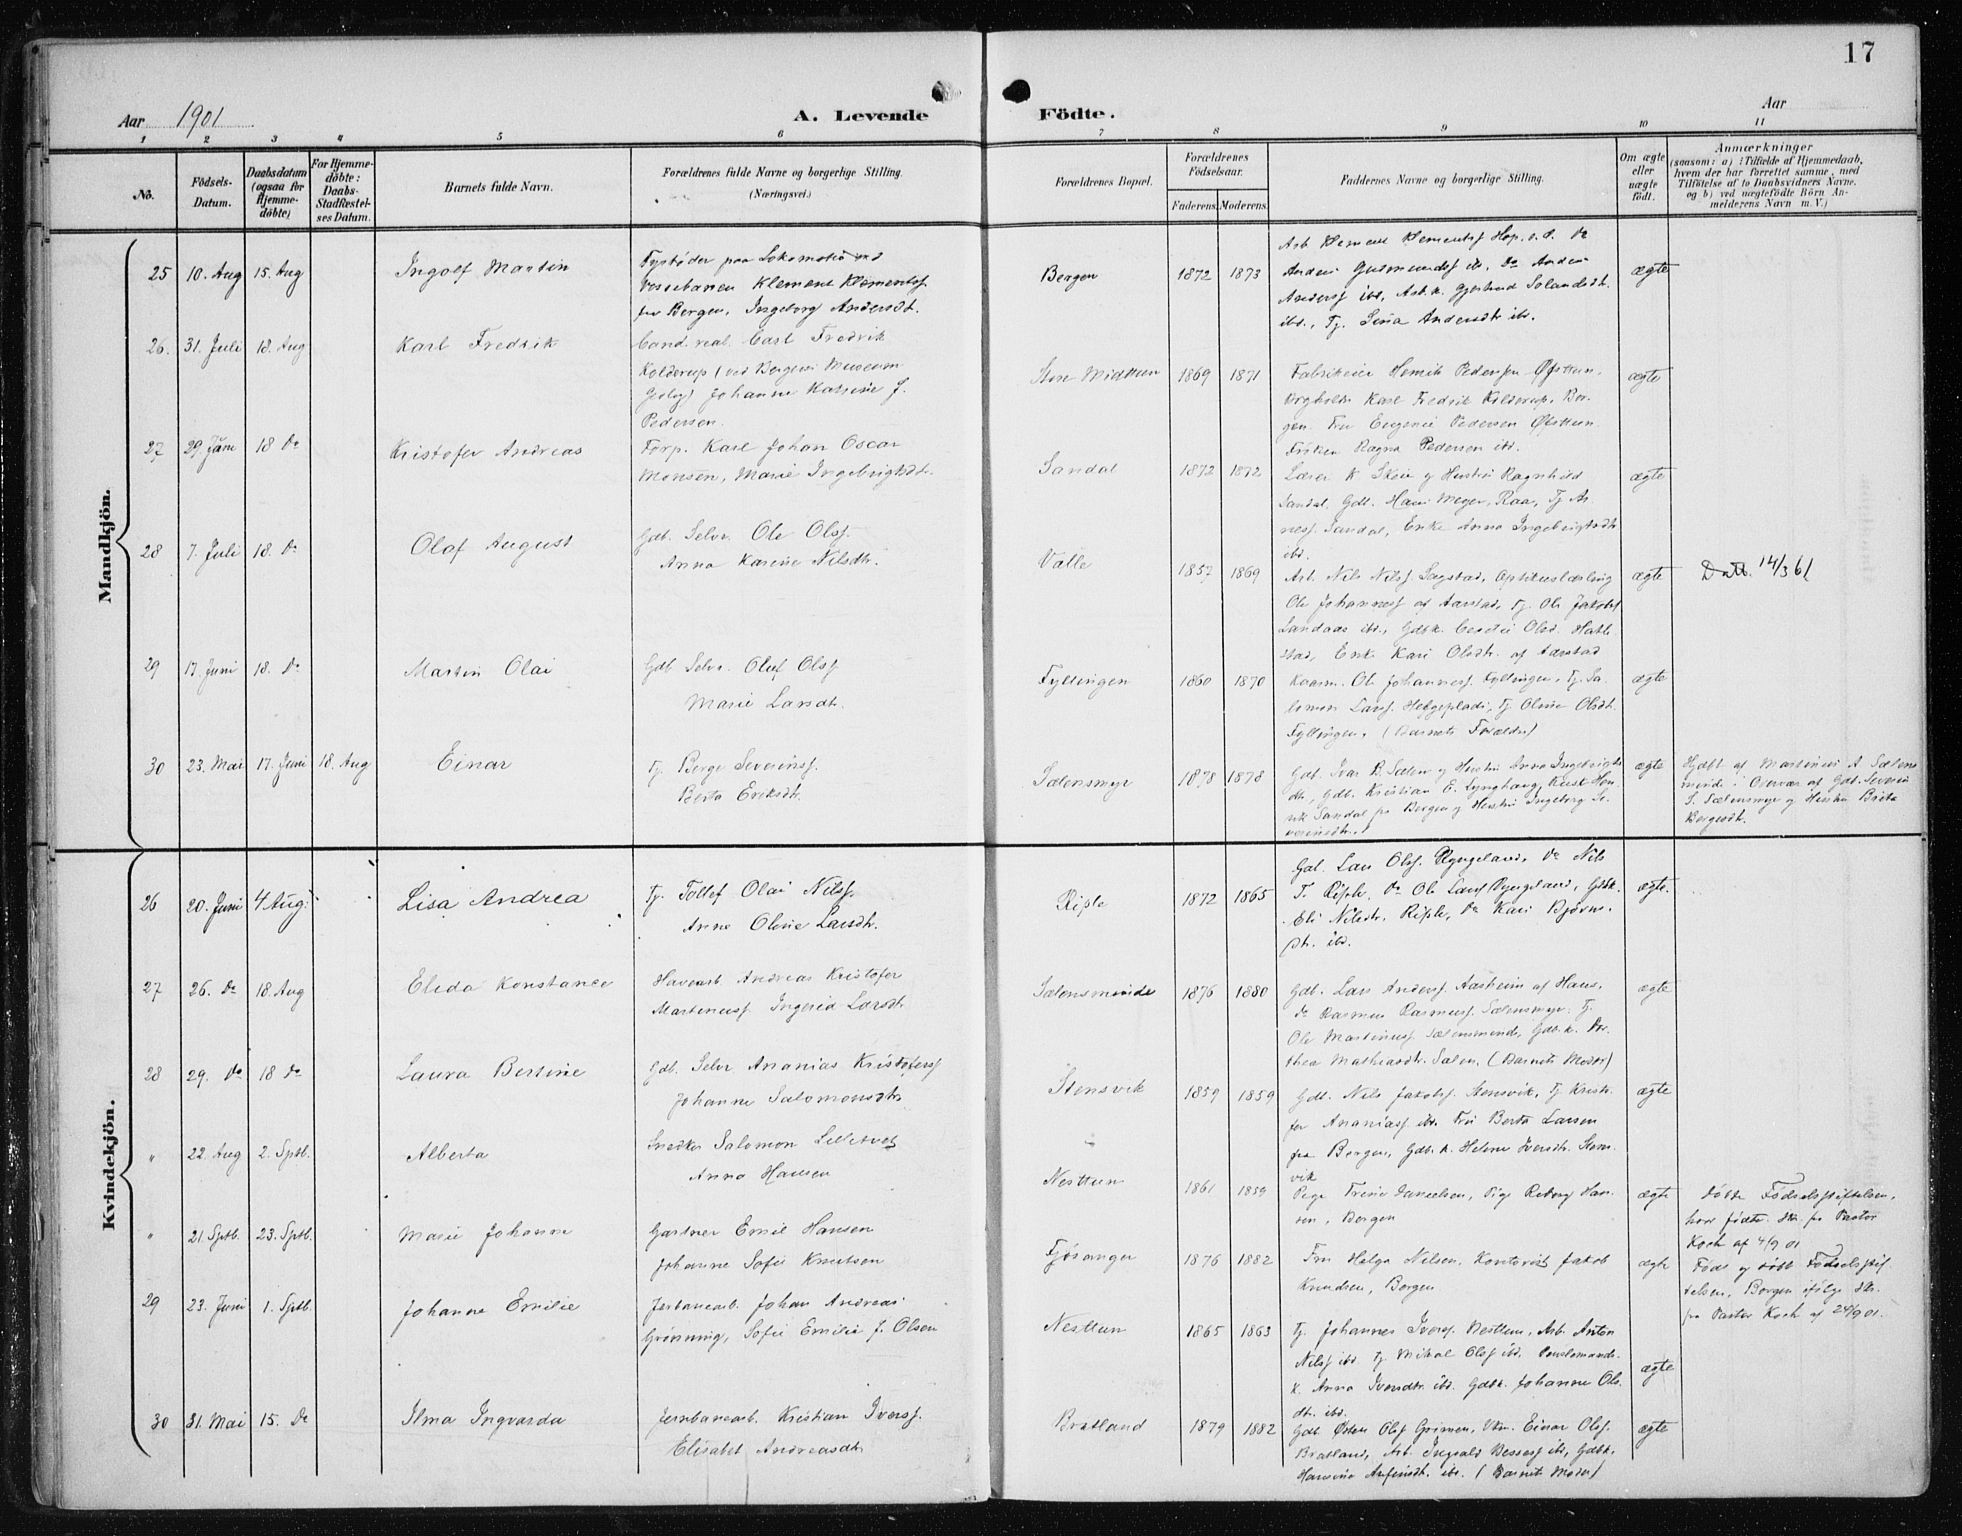 17
Aar 1901
A. Levende Födte.
Aar
1 2 3 4 5 6 7 8 9 10 11
No.
Födsels-Datum.
Daabsdatum (ogsaa for Hjemme-döbte)
For Hjemme-döbte: Daabs-Stadfæstel-ses Datum.
Barnets fulde Navn.
Forældrenes fulde Navne og borgerlige Stilling.
(Næringsvei.)
Forældrenes Bopæl.
Forældrenes Födselsaar.
Faderens. Moderens.
Faddernes Navne og borgerlige Stilling.
Om ægte eller uægte födt.
Anmærkninger
(saasom: a) i Tilfælde af Hjemmedaab,
hvem der har forrettet samme, med
Tilföielse af to Daabsvidners Navne.
og b) ved uægtefödte Börn An-
melderens Navn m. V.)
Mandkjön.
25 10. Aug 15. Aug Ingolf Martin
Fyrbøder paa Lokomotiv ved
Vossebanen Klement Klementsf.
fra Bergen, Ingeborg Andersdt.
Bergen 1872 1873
Arb. Klement Klementsf Hop,
Anders Gudmundsf ib. Do Anders
Andersf ibd, Arb.k. Gjertrud
ibd., Tj. Andersdtr ibd.
ægte
26. 31. Juli 18. Aug Karl Fredrik
Cand. real. Carl Fredrik
Kolderup (ved Bergens Museum
Geolog) Johanne Katrine J.
Pedersen.
Store Midttun 1869 1871
Fabrikeier Henrik Pedersen Østtun,
Karl Fredrik Kolderup, Ber-
gen. Fru Eugenie Pedersen Østtun.
Frøken Ragna Pedersen ibd.
ægte
27 29. Juni 18 Do Kristofer Andreas
Forp. Karl Johan Oscar
Monsen, Marie Ingebrigtsdt.
Sandal 1872 1872
Lærer K. Skeie og Hustru Ragnhild
Sandal, Gdb. Hans Meyer, Raa, Tj. Ar-
nesf. Sandal, Enke Anna Ingebrigtsdtr
ibd.
ægte
28 7. Juli 18. Do Olaf August
Gdb. Selve. Ole Olsf.
Anna Karine Nilsdtr.
Valle 1857 1869
Arb. Nils Nilsf Sagstad,
Ole Johannesf af Aarstad, Tj. Ole Jakobsf
Landaas ibd., Gdbk. Olsd. Hatle-
stad, Enke Kari Olsdtr. af Aarstad
ægte 14/3 61
29 17. Juni 18. Do Martin Olai
Gdb. Selve. Oluf Olsf
Marie Larsdtr.
Fyllingen 1860 1870
Kaarm. Ole Johannesf. Fyllingen, Tj. Sa-
lomon Larsf. Tj. Oline Olsdt.
Fyllingen. (Barnets Forældre)
ægte
30 23. Mai 17. Juni 18. Aug Einar
Tj. Berge Severinsf.
Berta Eriksdtr.
Sælensmyr 1878 1878
Gdb. Ivar B. Sælen og Hustru Anna Ingebrigts-
dtr, Gdb. Kristian E. Lynghaug, Hen-
rik Sandal fra Bergen og Hustru Ingeborg Se-
verinsdtr.
ægte
Hjdbt af Martinus A Sælens-
minde. Overvær af Gdb. Severin
S. Sælensmyr og Hustru Brita
Bergesdt.
Kvindekjön.
26 20. Juni 4 Aug. Lisa Andrea
Tj. Tollef Olai Nilsf.
Anne Oline Larsdtr.
Riple 1872 1865
Gdb. Lars Olsf. Ryngeland, Do Nils
T. Riple, Do Ole Larsf Ryngeland, Gdbk.
Eli Nilsdtr. Riple, Do Kari Bjørns-
dtr. ibd.
ægte.
27 26. Do 18. Aug Elida Konstance
Havearb. Andreas Kristofer
Martinusf. Ingerid Larsdtr
Sælensminde 1876 1880
Gdb. Lars Andersf. Aasheim af Haus,
Do Rasmus Rasmusf. Sælensmyr. Tj.
Ole Martinusf Sælensminde, Gdb.k. Do-
thea Mathiasdtr. Sælen. (Barnets Moder)
ægte
28 29. Do 18 Do Laura Bertine
Gdb. Selve Ananias Kristofersf
Johanne Salomonsdtr
Stensvik 1859 1859
Gdb. Nils Jakobsf. Stensvik, Tj Kristo-
fer Ananiasf ibd. Fru Berta Larsen
fra Bergen, Gdb.k. Helene Iversdtr. Stens-
vik
ægte
" 22. Aug 2. Sptb. Alberta
Snedker Salomon Lilletvet
Anna Hansen
Nesttun 1861 1859
Pige Trine Danielsen, Pige Han-
sen, Bergen
ægte
Døbt Fødselsstiftelsen,
hvor født. Skr. fra Pastor
Koch af 4/9 01
" 21. Sptb. 23. Sptb. Marie Johanne
Gartner Emil Hansen
Johanne Sofie Knutsen
Fjøsanger 1876 1882
Fru Helga Nilsen, Kontorist Jakob
Knudsen, Bergen
ægte
Født og døbt Fødselsstif-
telsen, Bergen ifølge Skr.
fra Pastor Koch af 24/9 01.
29 23. Juni 1. Sptb. Johanne Emilie
Jernbanearb. Johan Andreas
Grønning, Sofie Emilie J. Olsen
Nesttun 1865 1863
Tj. Johannes Iversf. Nesttun, Arb. Anton
Nilsf ibd. Tj. Mikal Olsf ibd.
k. Anna Iversdtr ibd. Gdbk. Johanne Ols-
dtr. ibd.
ægte
30 31. Mai 15. Do Ilma Ingvarda
Jernbanearb. Kristian Iversf.
Elisabet Andreasdtr
Bratland 1879 1882
Gdb Østen Olsf Grimen, Einar Olsf.
Bratland, Arb. Ingvald ibd, Gdbk.
Hansine Arfinsdtr. ibd. (Barnets Moder)
ægte